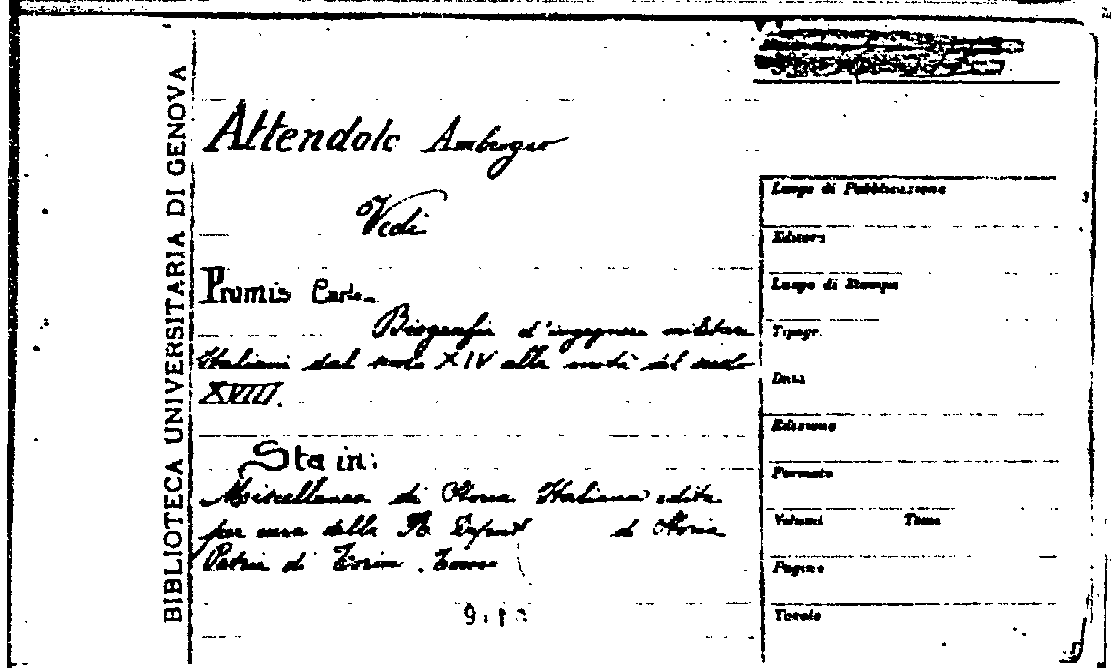 BIBLIOTECA UNIVERSITARIA DI GENOVA
Attendolo Ambrogio
Vedi
Promis Carlo
Biografie d'ingegneri militari
Italiani dal secolo XIV alla metà del secolo
XVIII.
Sta in:
Miscellanea di Storia Italiana edita
per cura della R. di Storia
Patria di Torino. Tomo
Luogo di Pubblicazione
Editore
Luogo di Stampa
Tipogr.
Data
Edizione
Formato
Volumi Tomo
Pagine
Tavole